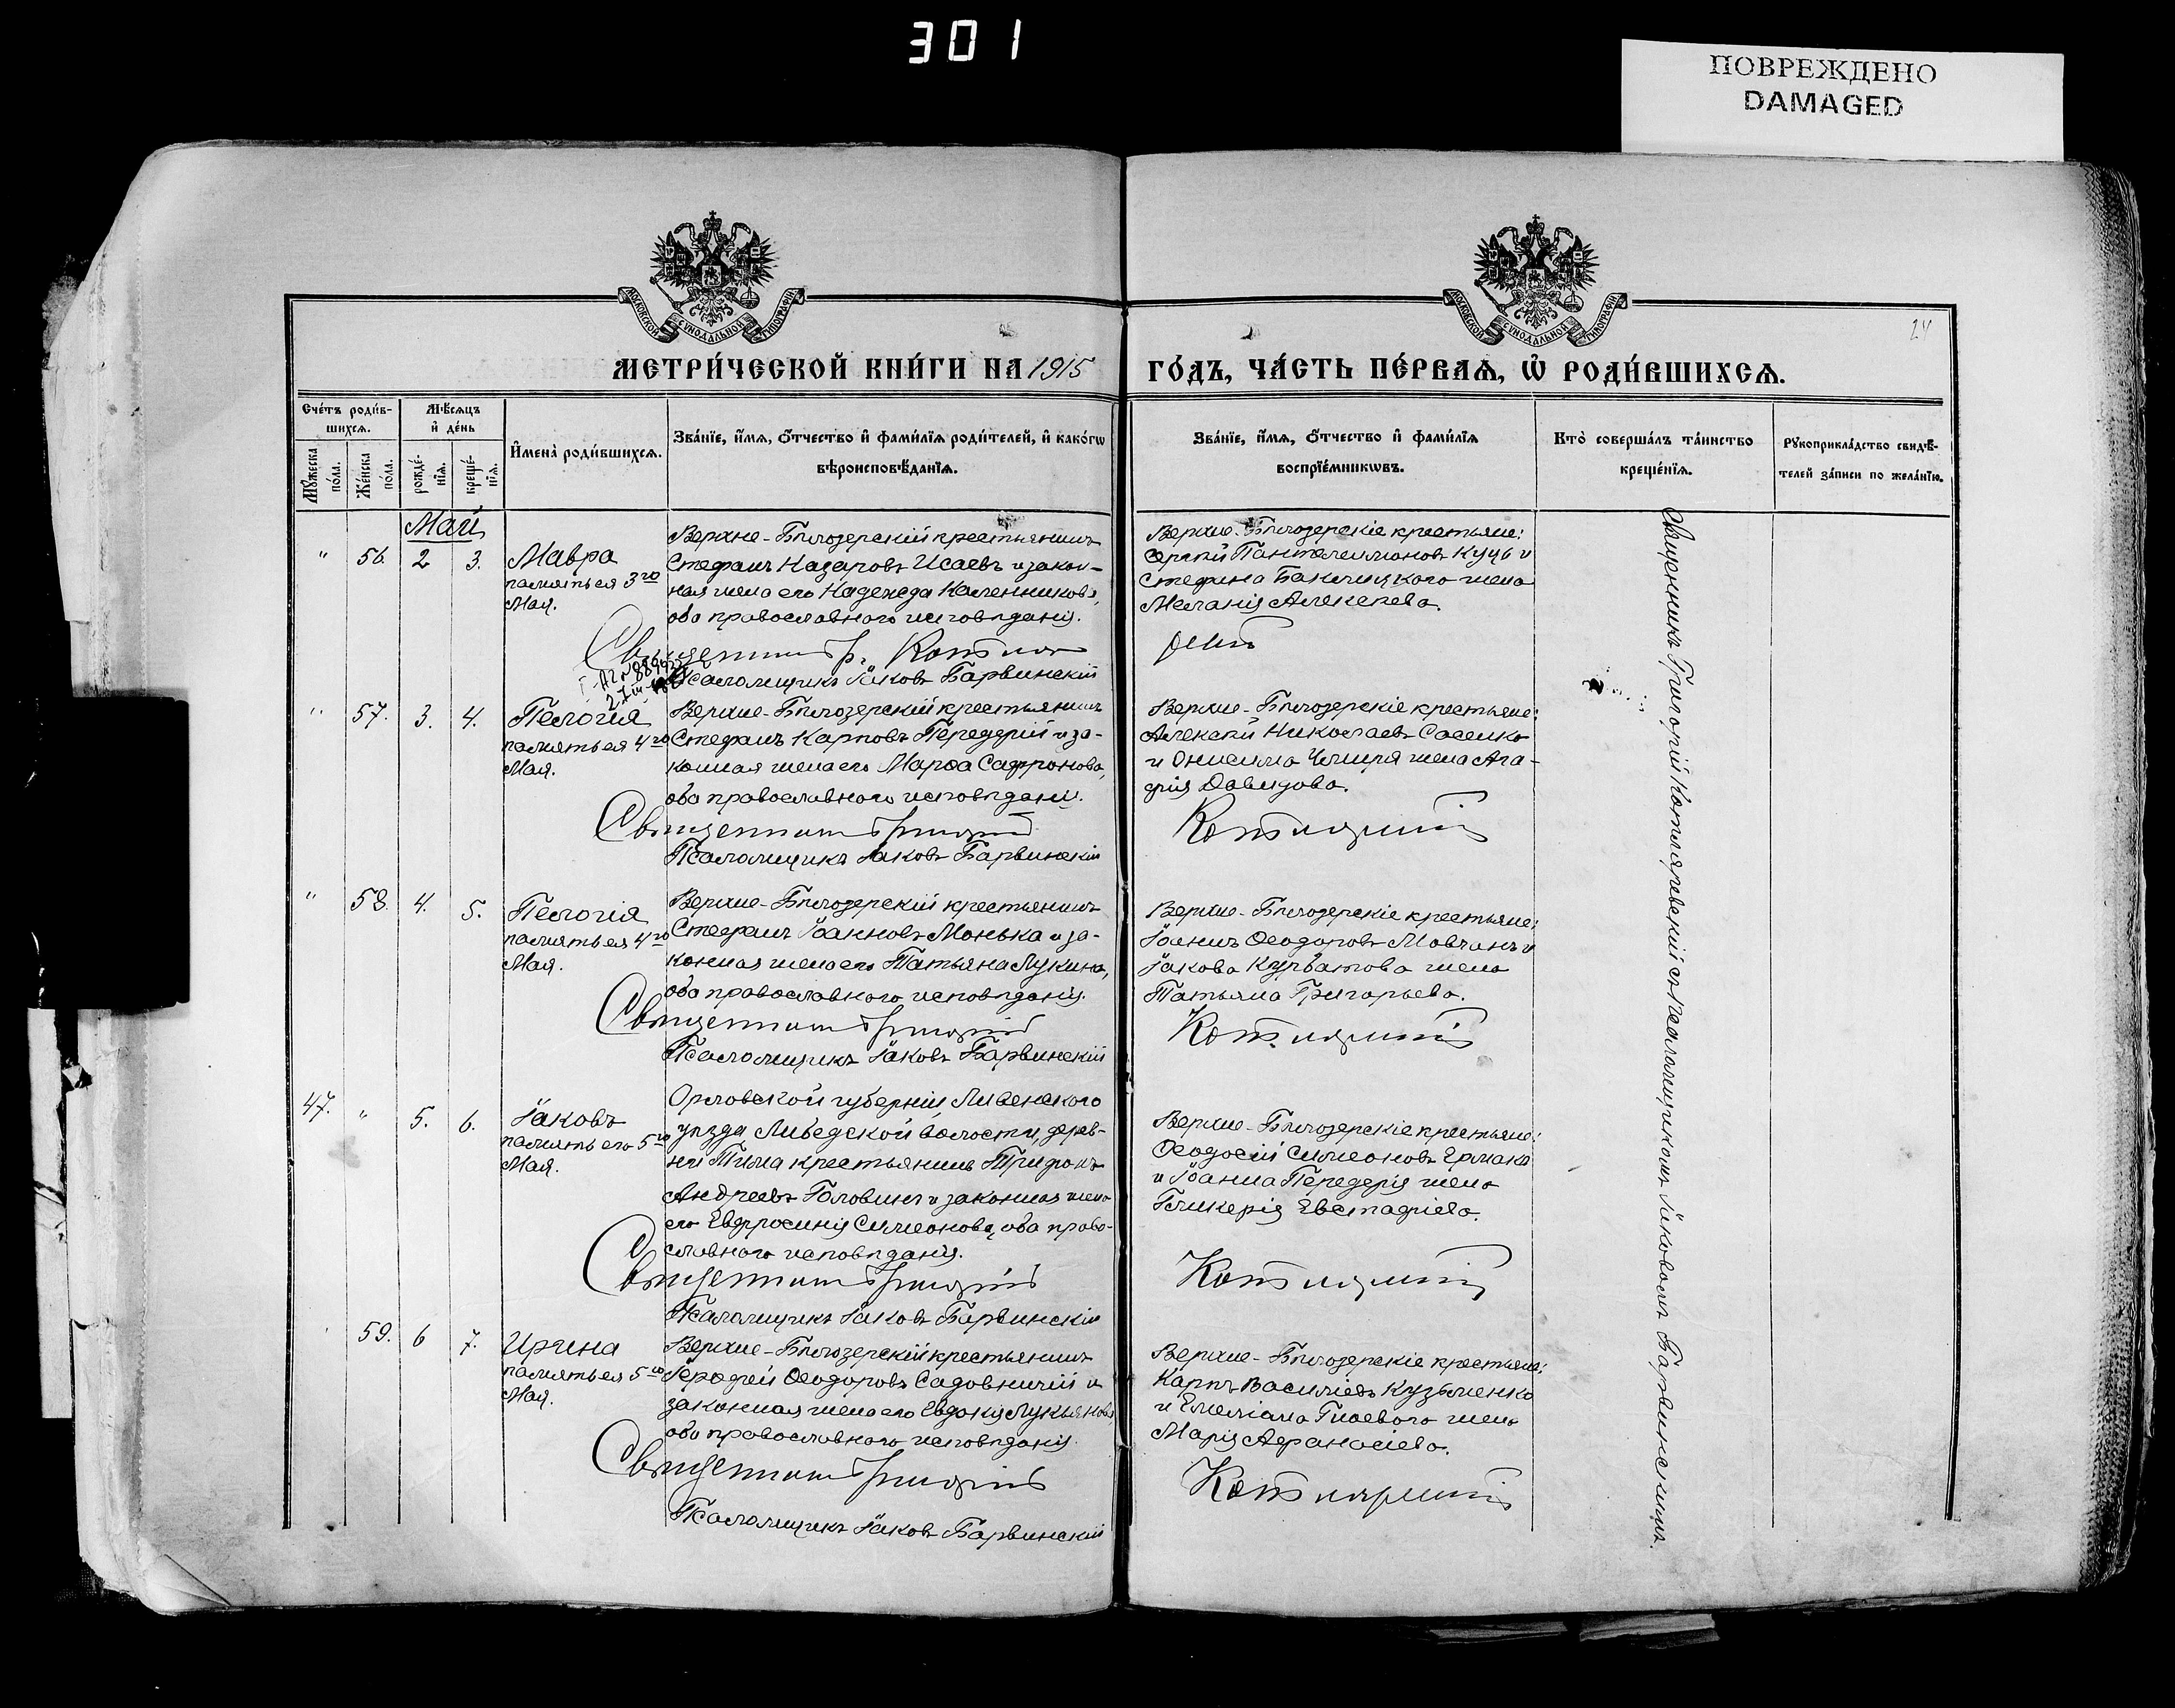 301
ПОВРЕЖДЕНО
DAMAGED
МОСКОВСКОЙ СѴНОДАЛЬНОЙ ТИПОГРАФІИ
МОСКОВСКОЙ СѴНОДАЛЬНОЙ ТИПОГРАФІИ
24
МЕТРИ́ЧЕСКОЙ КНИ́ГИ НА 1915
ГО́ДЪ, ЧА́СТЬ ПЕ́РВАѦ, Ѡ҆ РОДИ́ВШИХСѦ.
Сче́тъ роди́в-
шихсѧ.
Мѣ́сѧцъ
и҆ де́нь
Мꙋ́жеска
по́ла.
Же́нска
по́ла.
рожде́-
нїѧ.
креще́-
нїѧ.
И҆мена̀ роди́вшихсѧ.
Зва́нїе, и҆́мѧ, ѻ҆́тчество и҆ фами́лїѧ роди́телей, и҆ како́гѡ
вѣроисповѣ́данїѧ.
Зва́нїе, и҆́мѧ, ѻ҆́тчество и҆ фами́лїѧ
воспрїе́мникѡвъ.
Кто̀ соверша́лъ та́инство
креще́нїѧ.
Рꙋкоприкла́дство свидѣ́-
телей за́писи по жела́нїю.
Май
" 56. 2 3.
Мавра
память ея 3го
Мая.
Верхне-Бѣлозерскій крестьянинъ
Стефанъ Назаровъ Исаевъ и закон-
ная жена его Надежда Каленникова,
оба православнаго исповѣданія.
Священникъ Гр.
Псаломщикъ Іаковъ Барвинскій
Верхне-Бѣлозерскіе крестьяне:
Сергій Пантелеимоновъ Куцъ и
Стефана жена
Меланія Алексѣева.
" 57. 3. 4.
Пелагія
память ея 4го
Мая.
Верхне-Бѣлозерскій крестьянинъ
Стефанъ Карповъ Передерій и за-
конная жена его Марѳа Сафронова,
оба православнаго исповѣданія.
Священникъ Григорій
Псаломщикъ Іаковъ Барвинскій
Верхне-Бѣлозерскіе крестьяне:
Алексѣй Николаевъ Сасенко
и Онисима жена Ага-
фія Давидова.
Котляревскій
" 58. 4. 5.
Пелагія
память ея 4го
Мая.
Верхне-Бѣлозерскій крестьянинъ
Стефанъ Іоанновъ Монька и за-
конная жена его Татьяна Лукина,
оба православнаго исповѣданія.
Священникъ Григорій
Псаломщикъ Іаковъ Барвинскій
Верхне-Бѣлозерскіе крестьяне:
Іоаннъ Ѳеодоровъ Мовчанъ и
Іакова Курбатова жена
Татьяна Григорьева.
Котляревскій
47. " 5. 6.
Іаковъ
память его 5го
Мая.
Орловской губерніи, Ливенскаго
уѣзда, волости, дерев-
ни Тима крестьянинъ Трифонъ
Андреевъ Головинъ и законная жена
его Евфросинія Симеонова, оба право-
славнаго исповѣданія.
Священникъ Григорій
Псаломщикъ Іаковъ Барвинскій
Верхне-Бѣлозерскіе крестьяне:
Ѳеодосій Симеоновъ Ермакъ
и Іоанна Передерія жена
Гликерія Евстафіева.
Котляревскій
59. 6 7.
Ирина
память ея 5го
Мая.
Верхне-Бѣлозерскій крестьянинъ
Ѳеодоровъ Садовничій и
законная жена его Евдокія Лукьянова,
оба православнаго исповѣданія.
Священникъ Григорій
Псаломщикъ Іаковъ Барвинскій
Верхне-Бѣлозерскіе крестьяне:
Карпъ Василіевъ Кузьменко
и Емеліана Гноевого жена
Марія Аѳанасіева.
Котляревскій
Священникъ Григорій Котляревскій съ псаломщикомъ Іаковомъ Барвинскимъ.